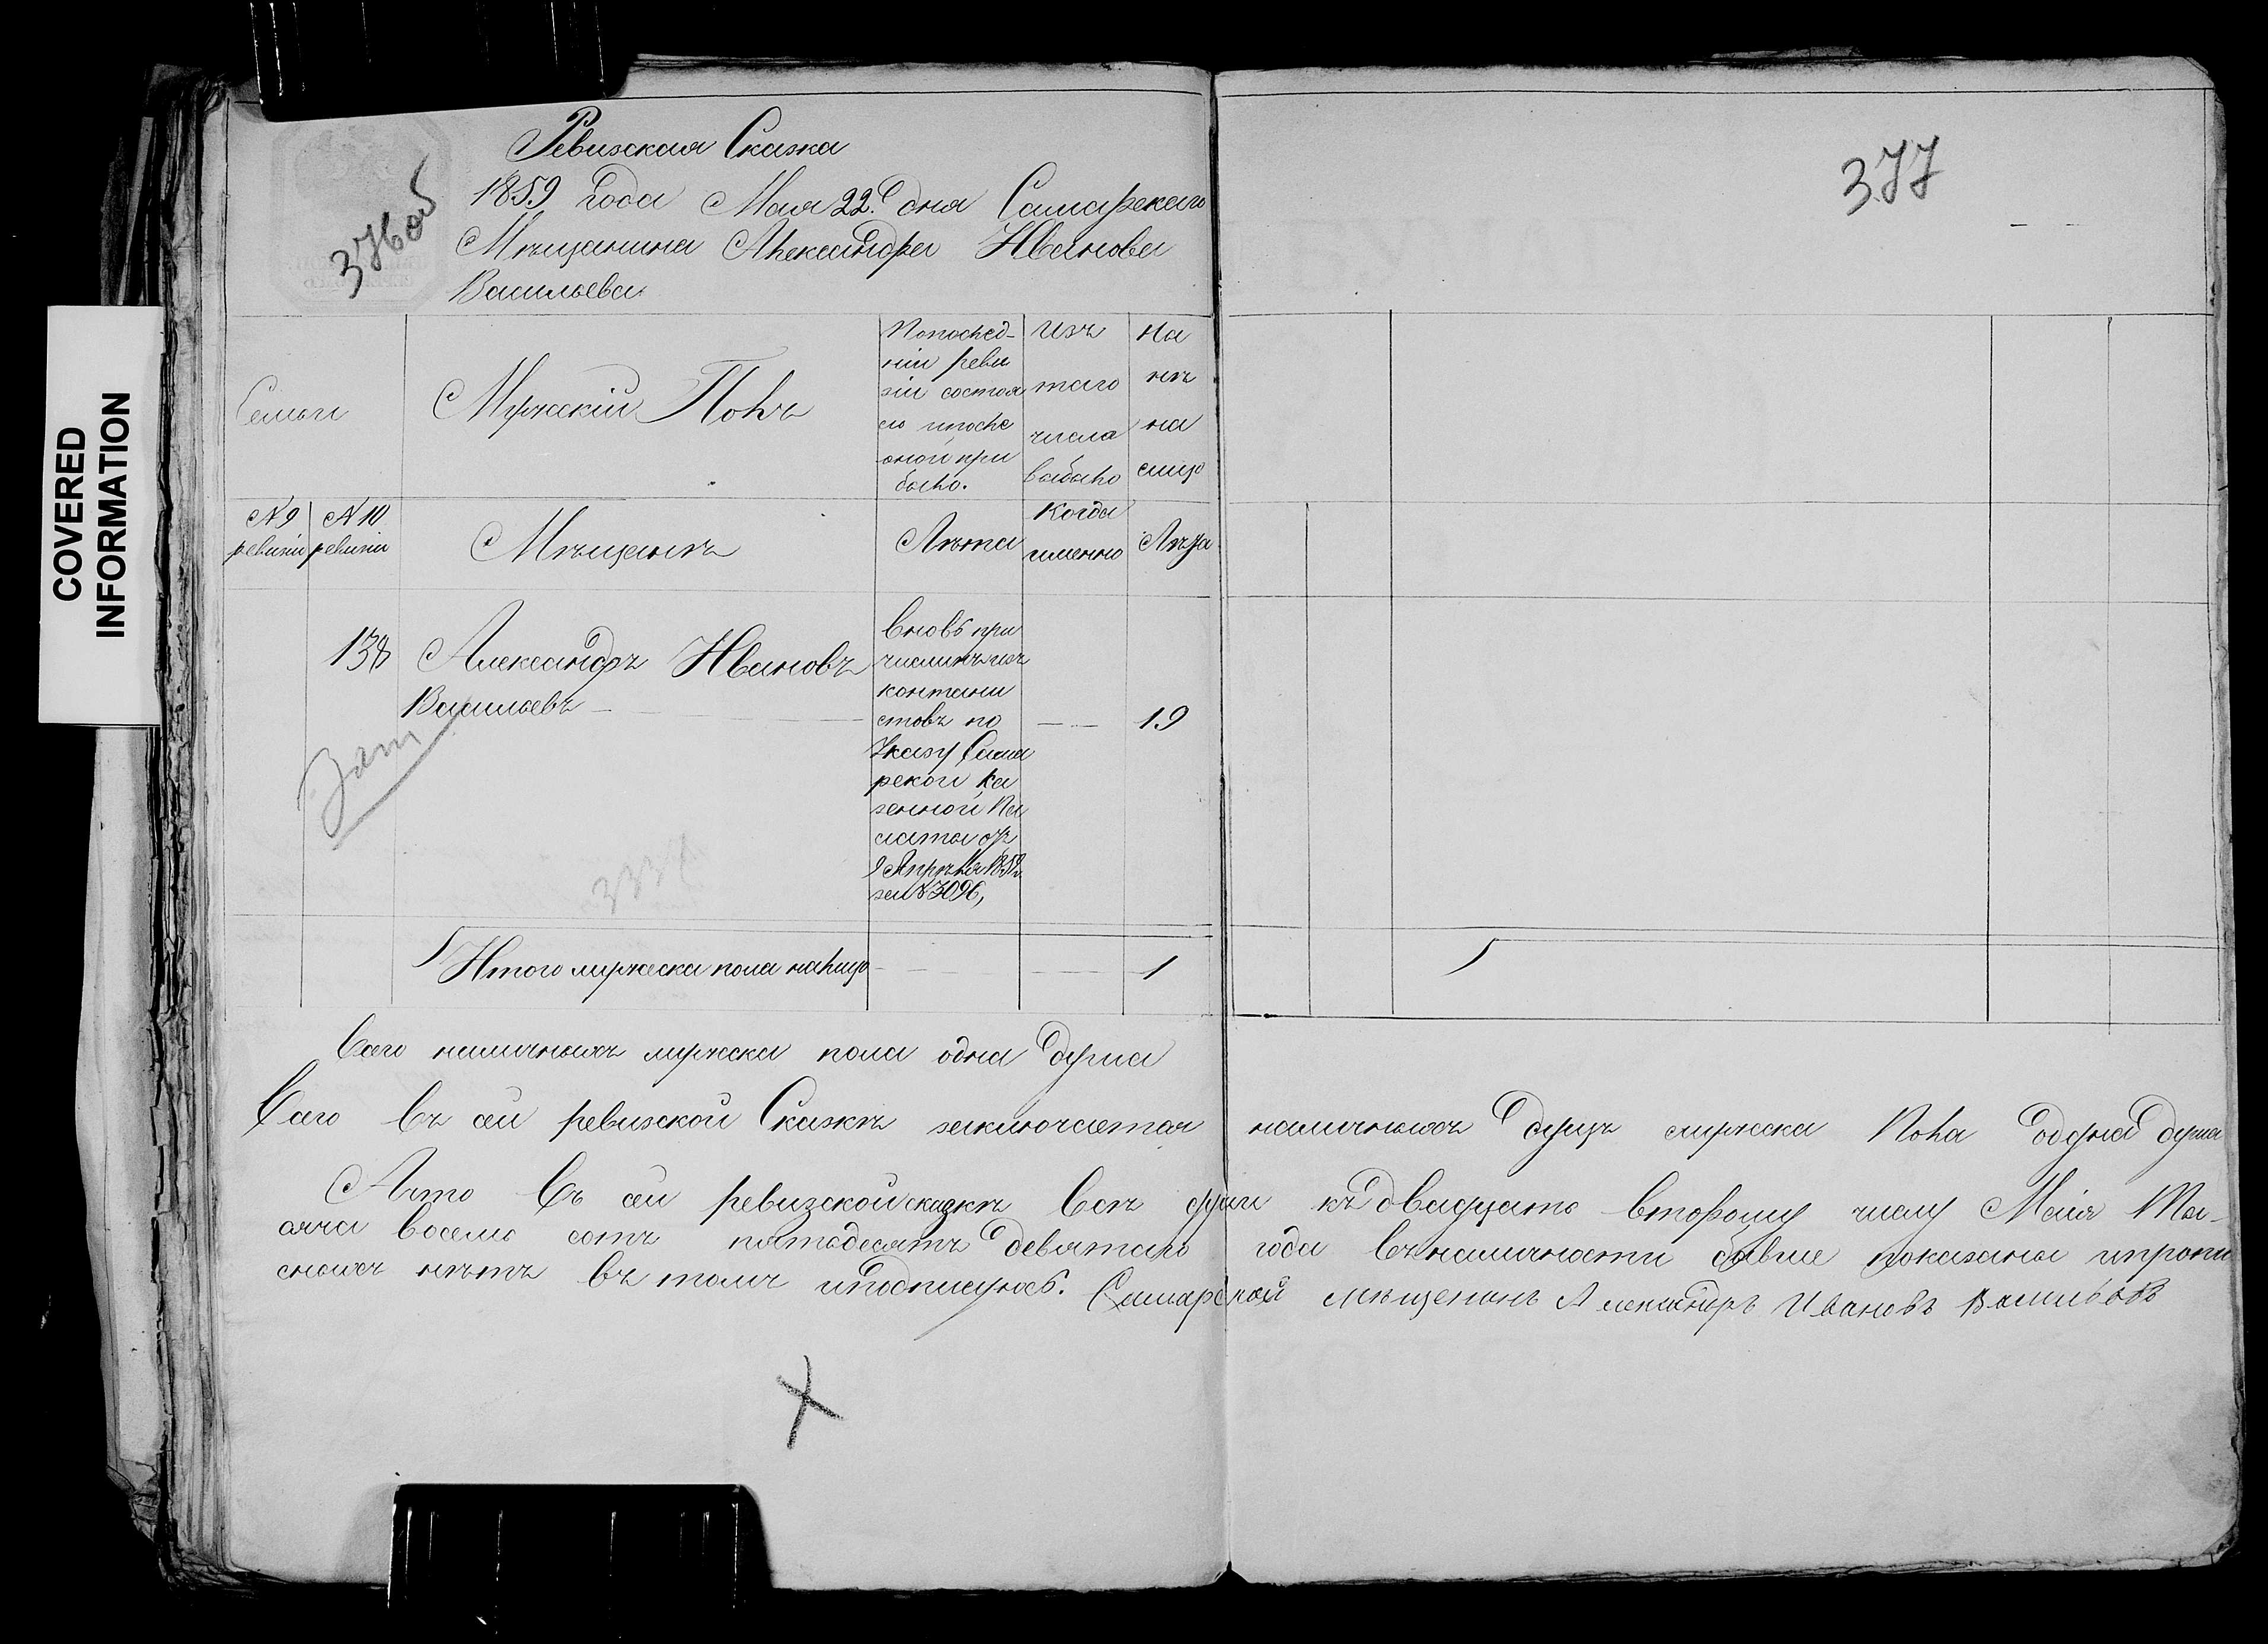 COVERED
INFORMATION
376об
377
Ревизская Сказка
1859 года Мая 22го дня Самарскаго
Мѣщанина Александра Иванова
Васильева
Семьи
Мужскій Полъ
Попослед-
ніи реви
зіи состоя
ло ипосле
оной при
было.
изъ
того
числа
выбыло
На
нѣ
на
лицо
№ 9 № 10
ревизіи ревизіи
Мѣщанъ
Лѣта
Когда
именно
Лѣта
138 Александръ Ивановъ
Васильевъ
вновь при
численъ изъ
контани
стовъ по
Указу Сама
рской Ка
зенной Па
латы отъ
9 Апрѣля 1859г
за № 3096,
19
Итого мужеска пола налицо 1
Всего наличныхъ мужеска пола одна душа
Всего въ сей ревизской Сказкѣ заключается наличныхъ душъ мужеска Пола одна душа
Что въ сей ревизской сказкѣ всѣ души къ двадцать второму числу Маія Ты-
сяча восемь сотъ пятьдесятъ девятаго года въ наличности бывше показаны ипропи
сныхъ нѣтъ въ томъ иподписуюсь. Самарской мещененъ Александръ Ивановъ Васильевъ